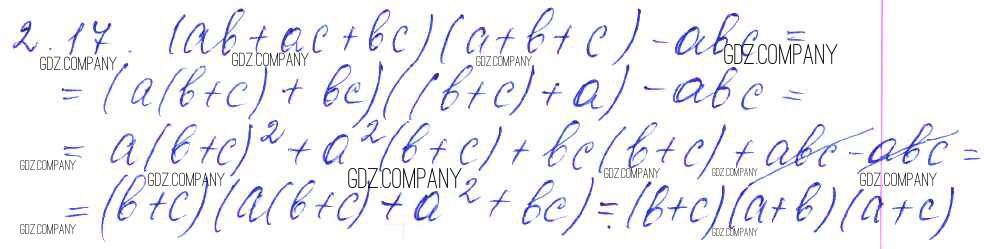 2.17. (ab+ac+bc)(a+b+c)-abc=
GDZ.COMPANY GDZ.COMPANY GDZ.COMPANY GDZ.COMPANY
=(a(b+c)+bc)((b+c)+a)-abc=
=a(b+c)²+a²(b+c)+bc(b+c)+abc-abc=
GDZ.COMPANY GDZ.COMPANY GDZ.COMPANY GDZ.COMPANY GDZ.COMPANY
=(b+c)(a(b+c)+a²+bc)=(b+c)(a+b)(a+c)
GDZ.COMPANY GDZ.COMPANY